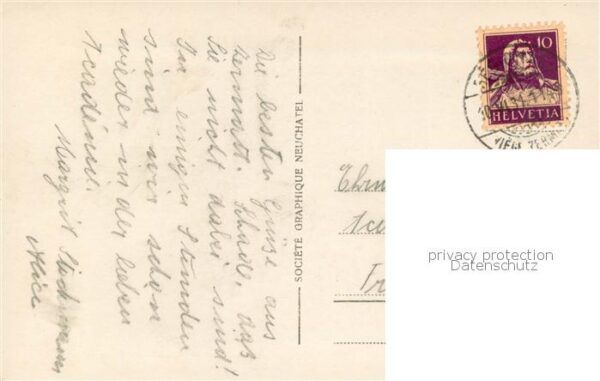 Die besten Grüße aus
Zermatt. Schade, daß
Sie nicht dabei sind!
In einigen Stunden
sind wir schon
wieder in der lieben
Académie.
Margrit
Alice
SOCIÉTÉ GRAPHIQUE NEUCHATEL
10
HELVETIA
VIÈGE ZERM
privacy protection
Datenschutz